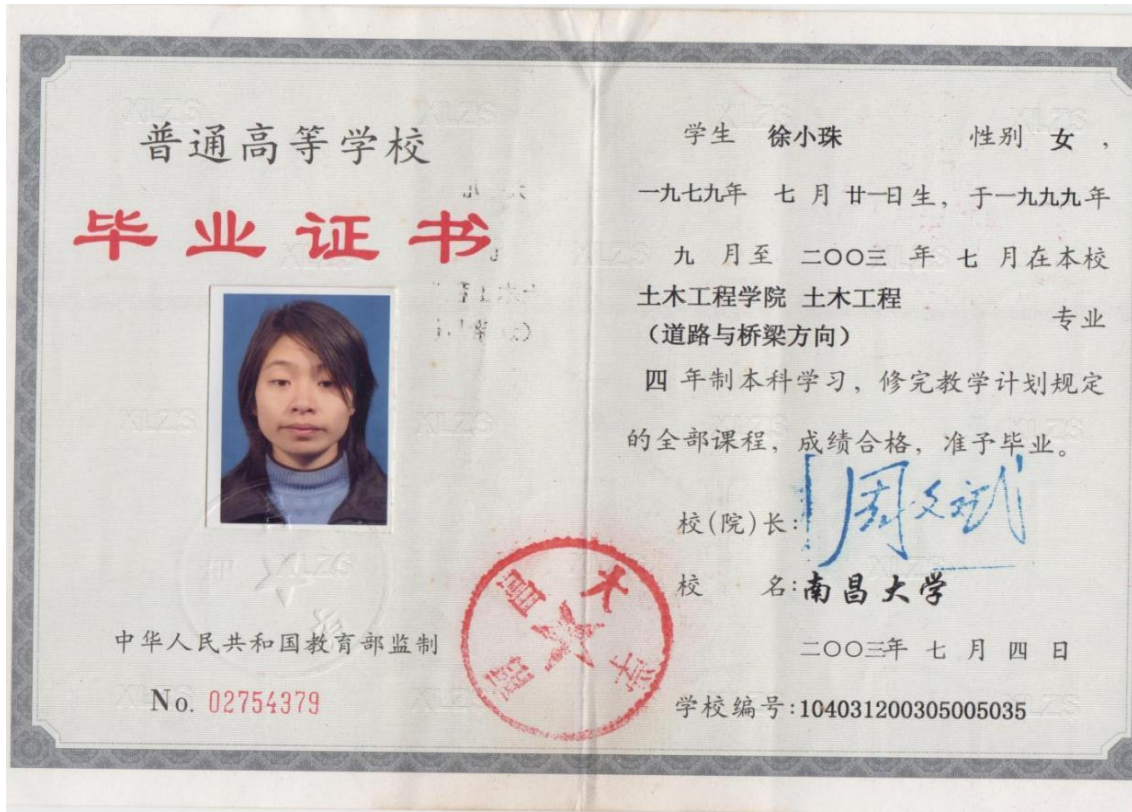 普通高等学校
毕业证书
中华人民共和国教育部监制
No. 02754379
学生 徐小珠 性别 女，
一九七九年 七 月 廿一日生，于一九九九年
九 月至 二〇〇三 年 七 月在本校
土木工程学院 土木工程
（道路与桥梁方向） 专业
四 年制本科学习，修完教学计划规定
的全部课程，成绩合格，准予毕业。
校(院)长：周文斌
校 名：南昌大学
二〇〇三年 七 月 四 日
学校编号：104031200305005035
南昌大学
XLZS